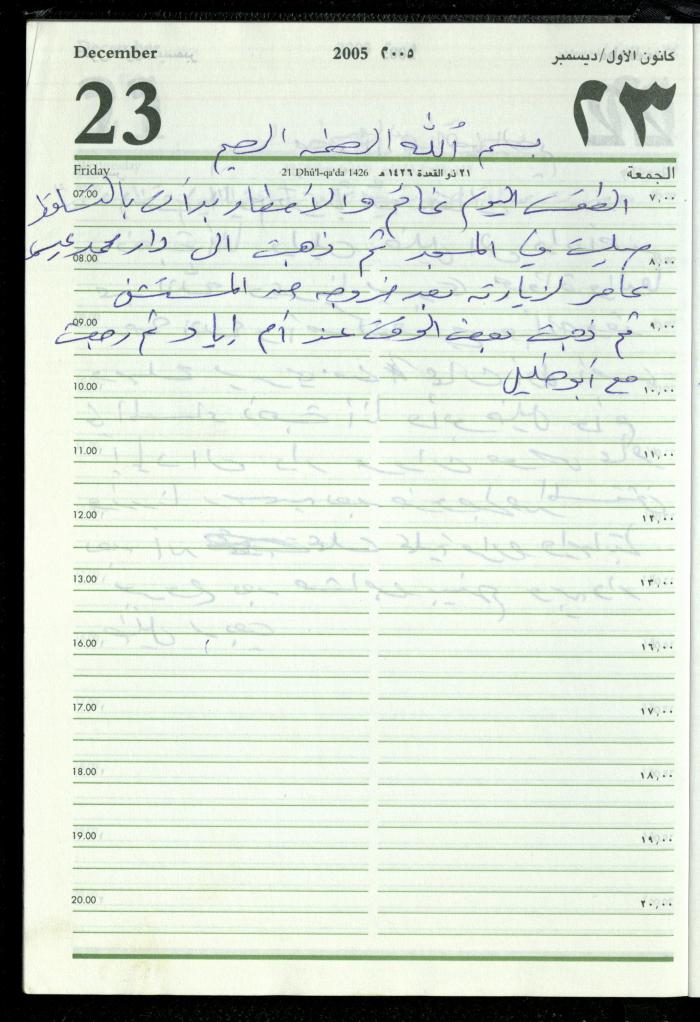 December 2005 ٢٠٠٥ كانون الاول/ديسمبر
23 ٢٣
بسم الله الرحمن الرحيم
Friday 21 Dhû'l-qa'da 1426 ٢١ ذو القعدة ١٤٢٦ هـ الجمعة
07.00 ٧,٠٠
الطقس اليوم غائم والأمطار بدأت بالتساقط
صليت في المسجد ثم ذهبت الى دار محمد عيسى
08.00 ٨,٠٠
عامر لزيارته بعد خروجه من المستشفى
09.00 ٩,٠٠
ثم ذهبت بعض الوقت عند أم إياد ثم رجعت
مع أبو خليل
10.00 ١٠,٠٠
11.00 ١١,٠٠
12.00 ١٢,٠٠
13.00 ١٣,٠٠
16.00 ١٦,٠٠
17.00 ١٧,٠٠
18.00 ١٨,٠٠
19.00 ١٩,٠٠
20.00 ٢٠,٠٠